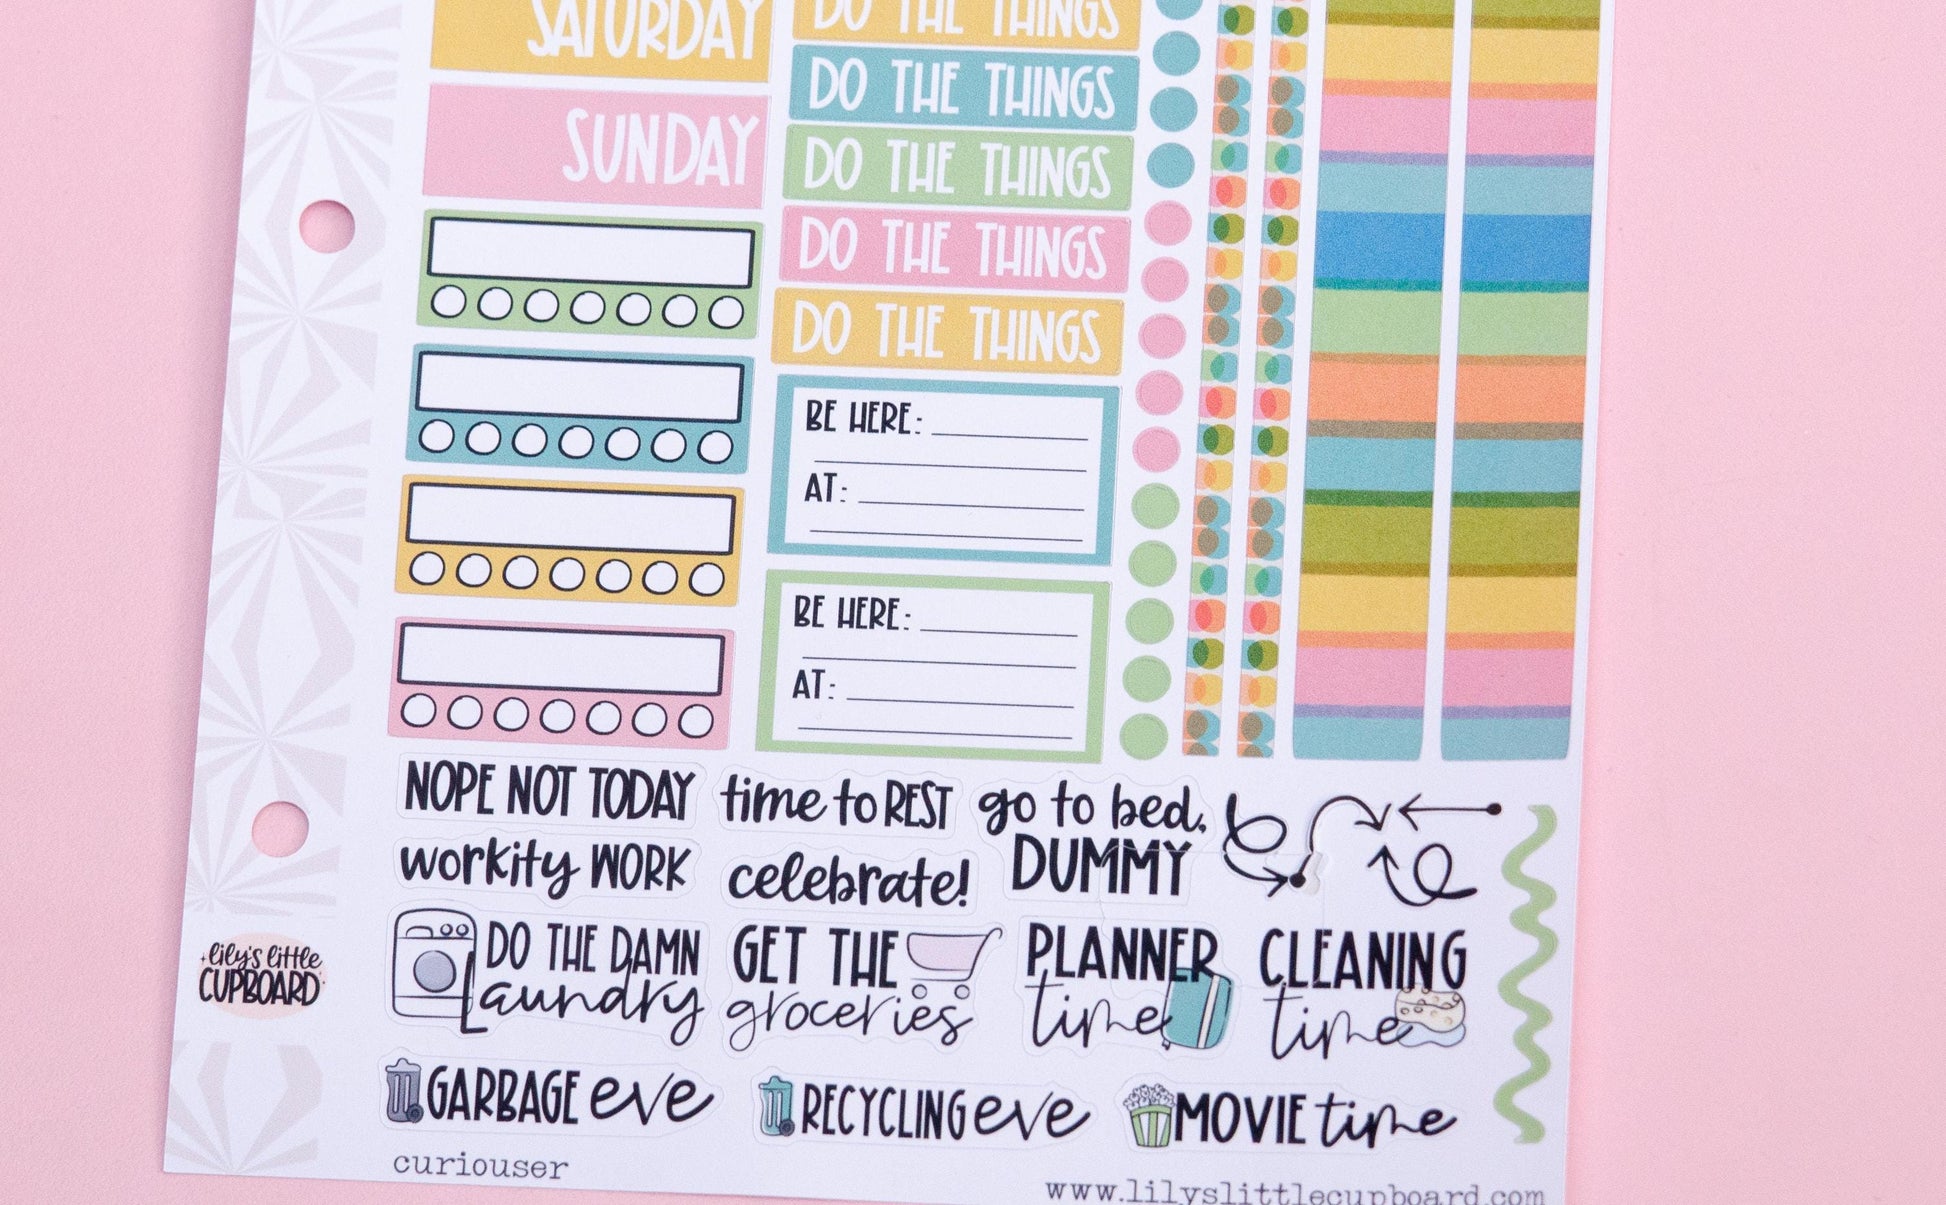 SATURDAY
SUNDAY
DO THE THINGS
DO THE THINGS
DO THE THINGS
DO THE THINGS
DO THE THINGS
BE HERE:
AT:
BE HERE:
AT:
NOPE NOT TODAY
time to REST
go to bed,
DUMMY
workity WORK
celebrate!
DO THE DAMN
Laundry
GET THE
groceries
PLANNER
time
CLEANING
time
GARBAGE eve
RECYCLING eve
MOVIE time
lily's little
CUPBOARD
curiouser
www.lilyslittlecupboard.com